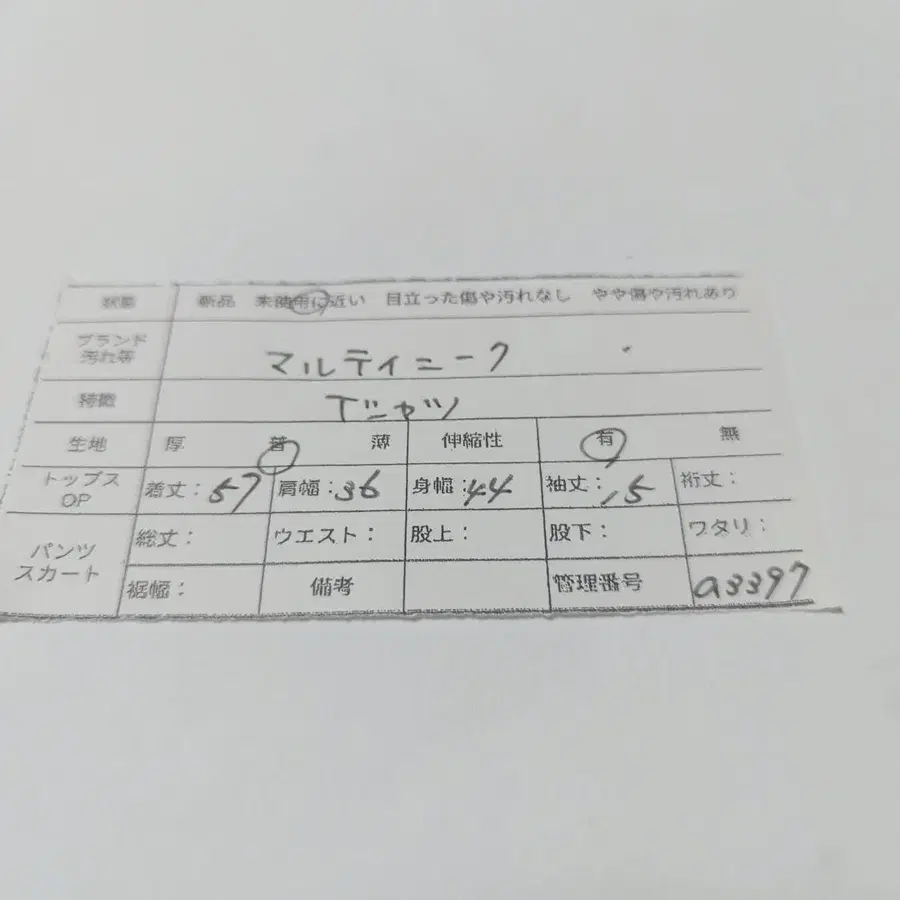 状態 新品 未使用に近い 目立った傷や汚れなし やや傷や汚れあり
ブランド
汚れ等 マルティニーク
特徴 Tシャツ
生地 厚 普 薄 伸縮性 有 無
トップス
OP 着丈：57 肩幅：36 身幅：44 袖丈：15 裄丈：
パンツ
スカート 総丈： ウエスト： 股上： 股下： ワタリ：
裾幅： 備考 管理番号 a3397